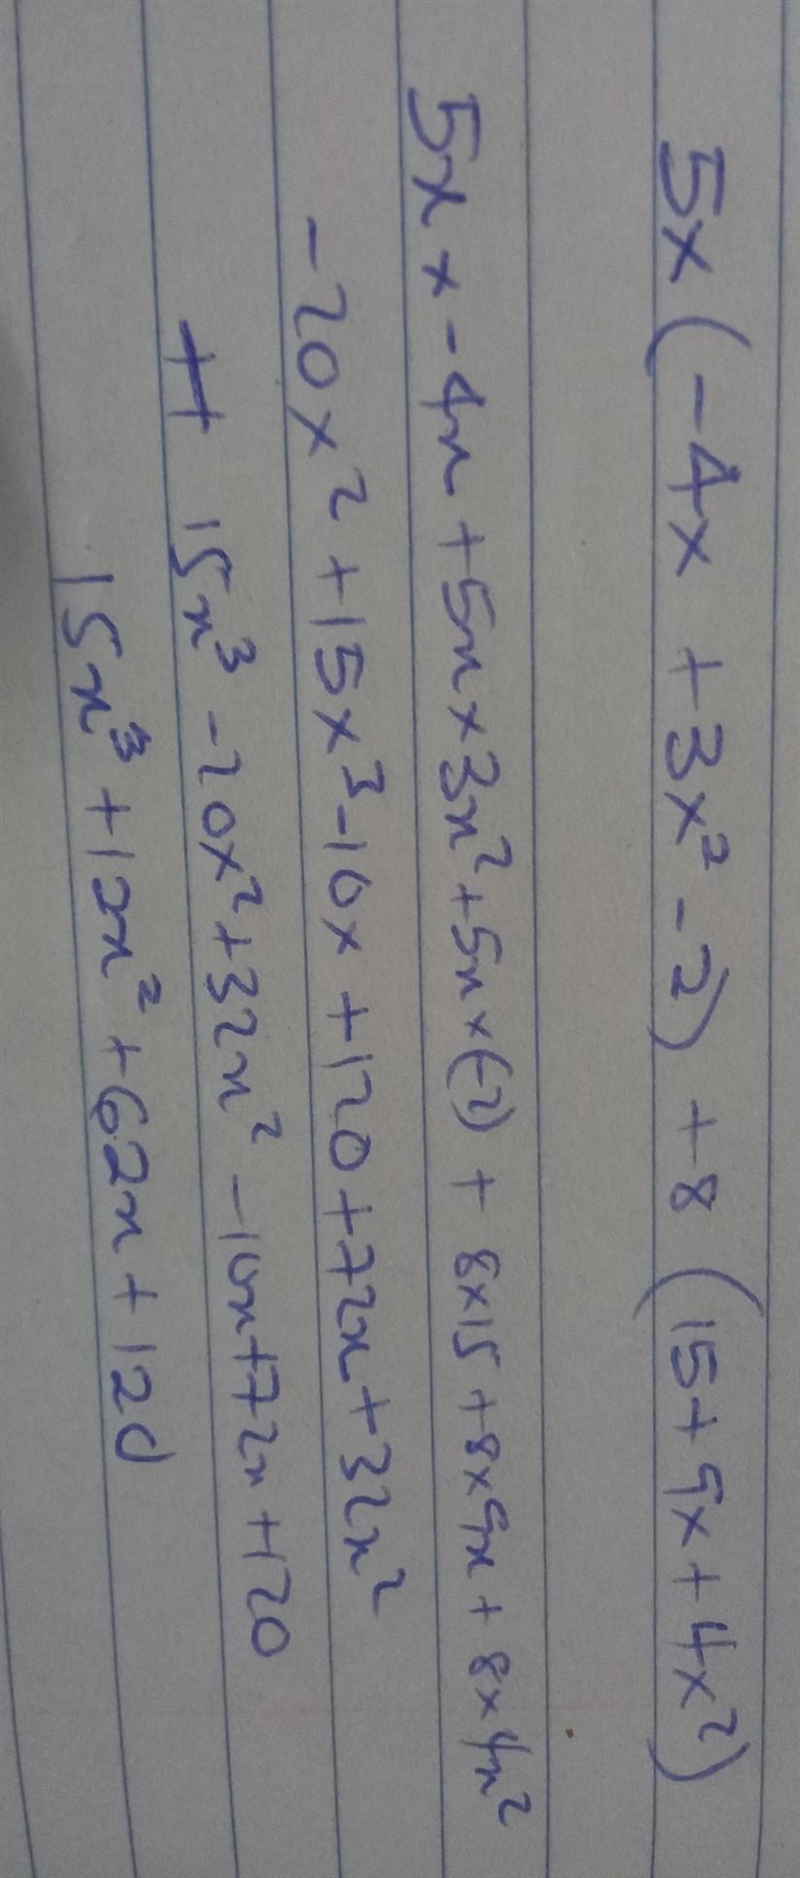 5x (-4x + 3x² - 2) + 8 (15 + 9x + 4x²)
5x x - 4x + 5x x 3x² + 5x x (-2) + 8x15 + 8x9x + 8x4x²
-20x² + 15x³ - 10x + 120 + 72x + 32x²
15x³ - 20x² + 32x² - 10x + 72x + 120
15x³ + 12x² + 62x + 120